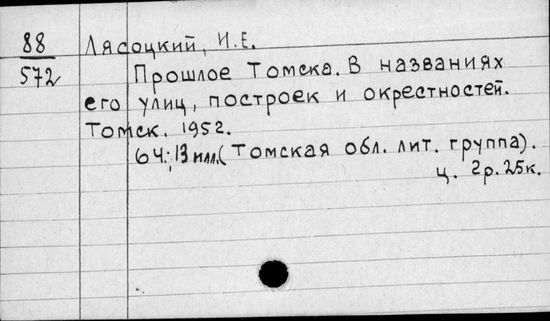 88
572
Лясоцкий, И.Е.
Прошлое Томска. В названиях
его улиц, построек и окрестностей.
Томск. 1952.
64.; 13 илл. (Томская обл. лит. группа).
ц. 2р. 25к.